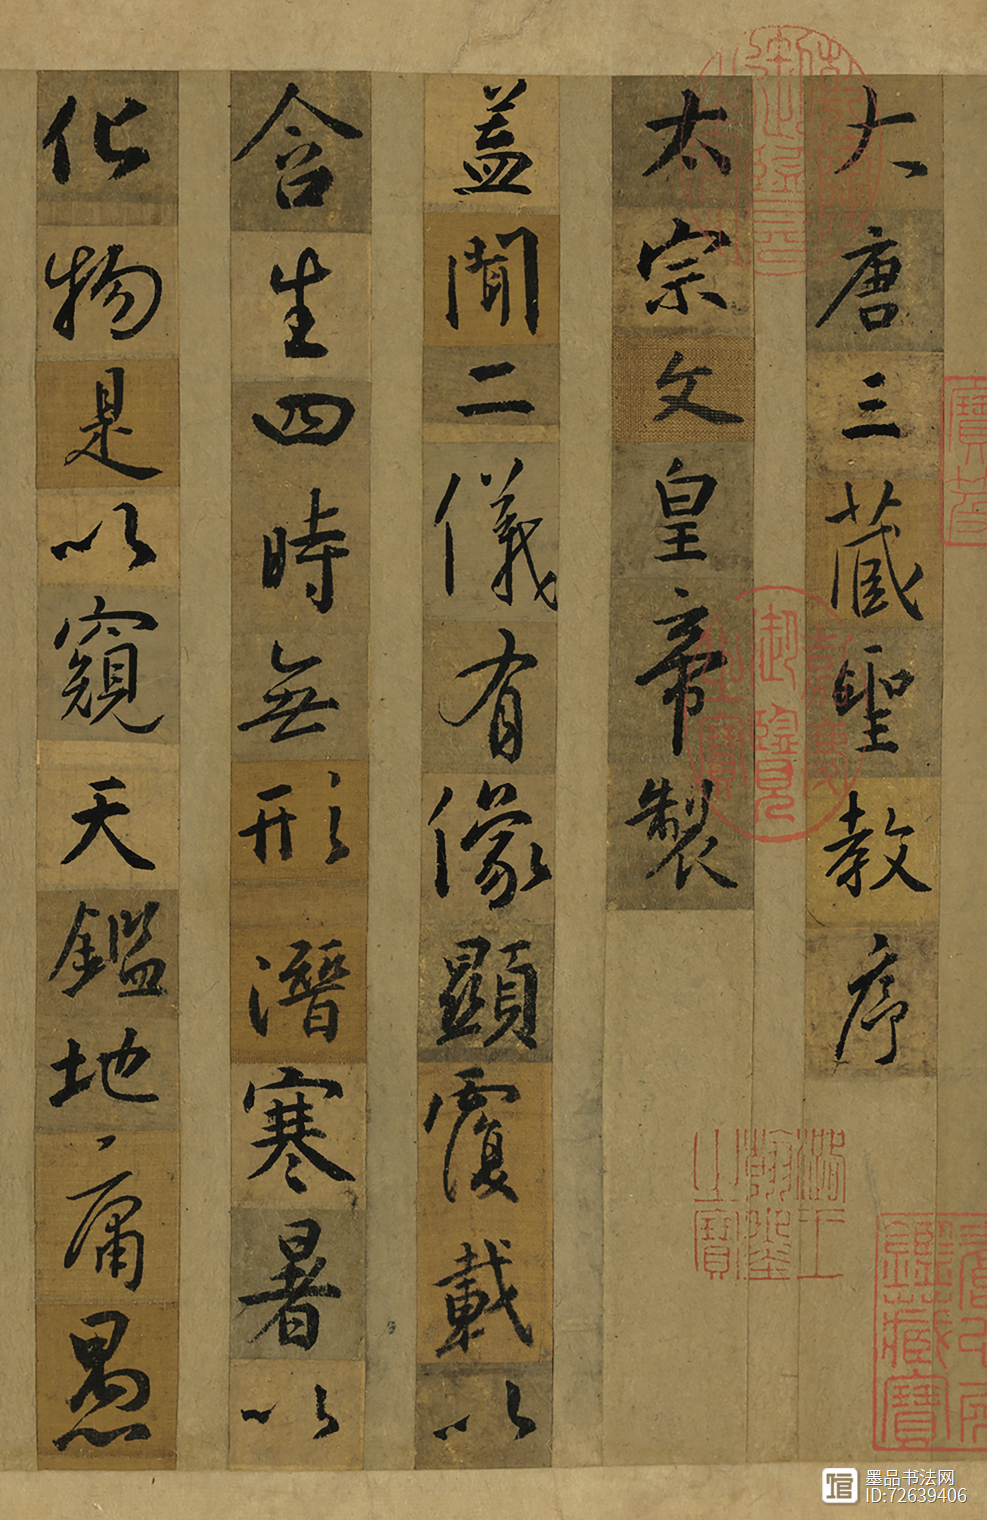 大唐三藏聖教序
太宗文皇帝製
蓋聞二儀有像顯覆載以
含生四時無形潛寒暑以
化物是以窺天鑑地庸愚
墨品书法网
ID:72639406